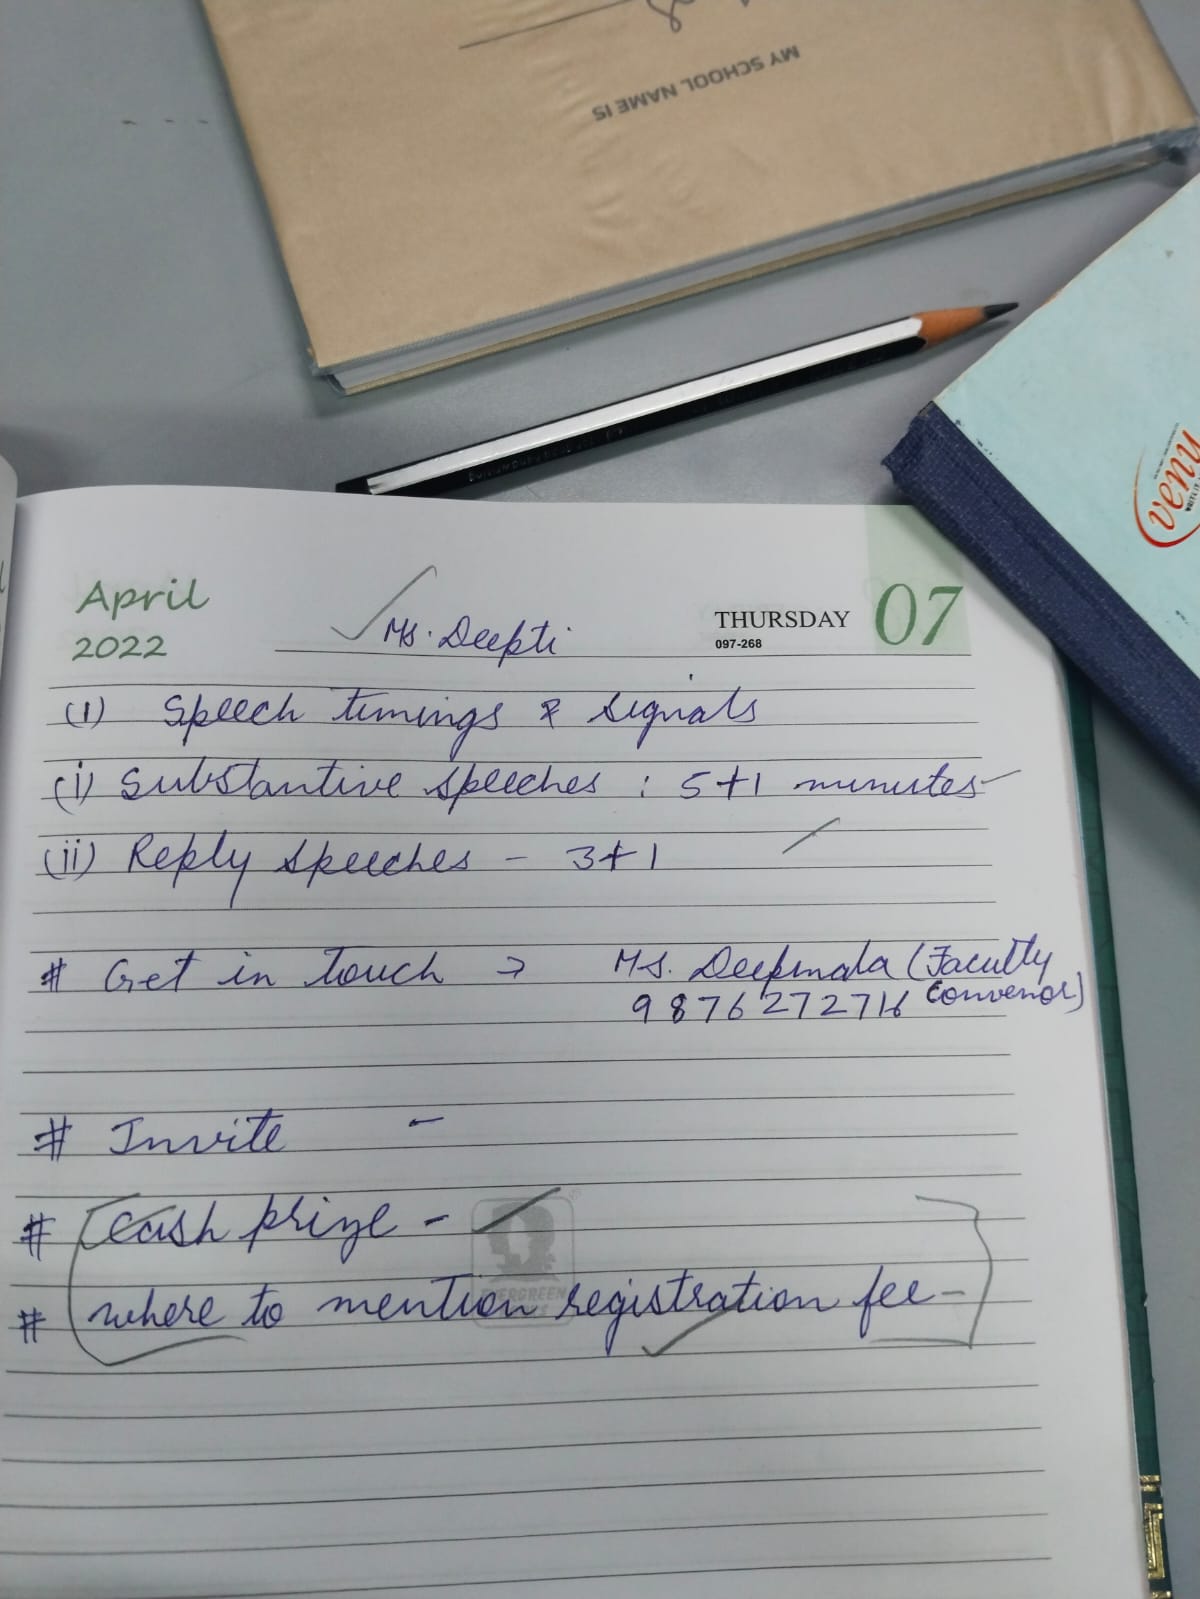 MY SCHOOL NAME IS
venu
April
2022
Ms. Deepti
THURSDAY
097-268
07
(1) Speech timings & signals
(i) Substantive speeches : 5+1 minutes
(ii) Reply speeches - 3+1
# Get in touch → Ms. Deepmala (Faculty
9876272716 Convenor)
# Invite -
# [cash prize -
EVERGREEN
# where to mention registration fee-]